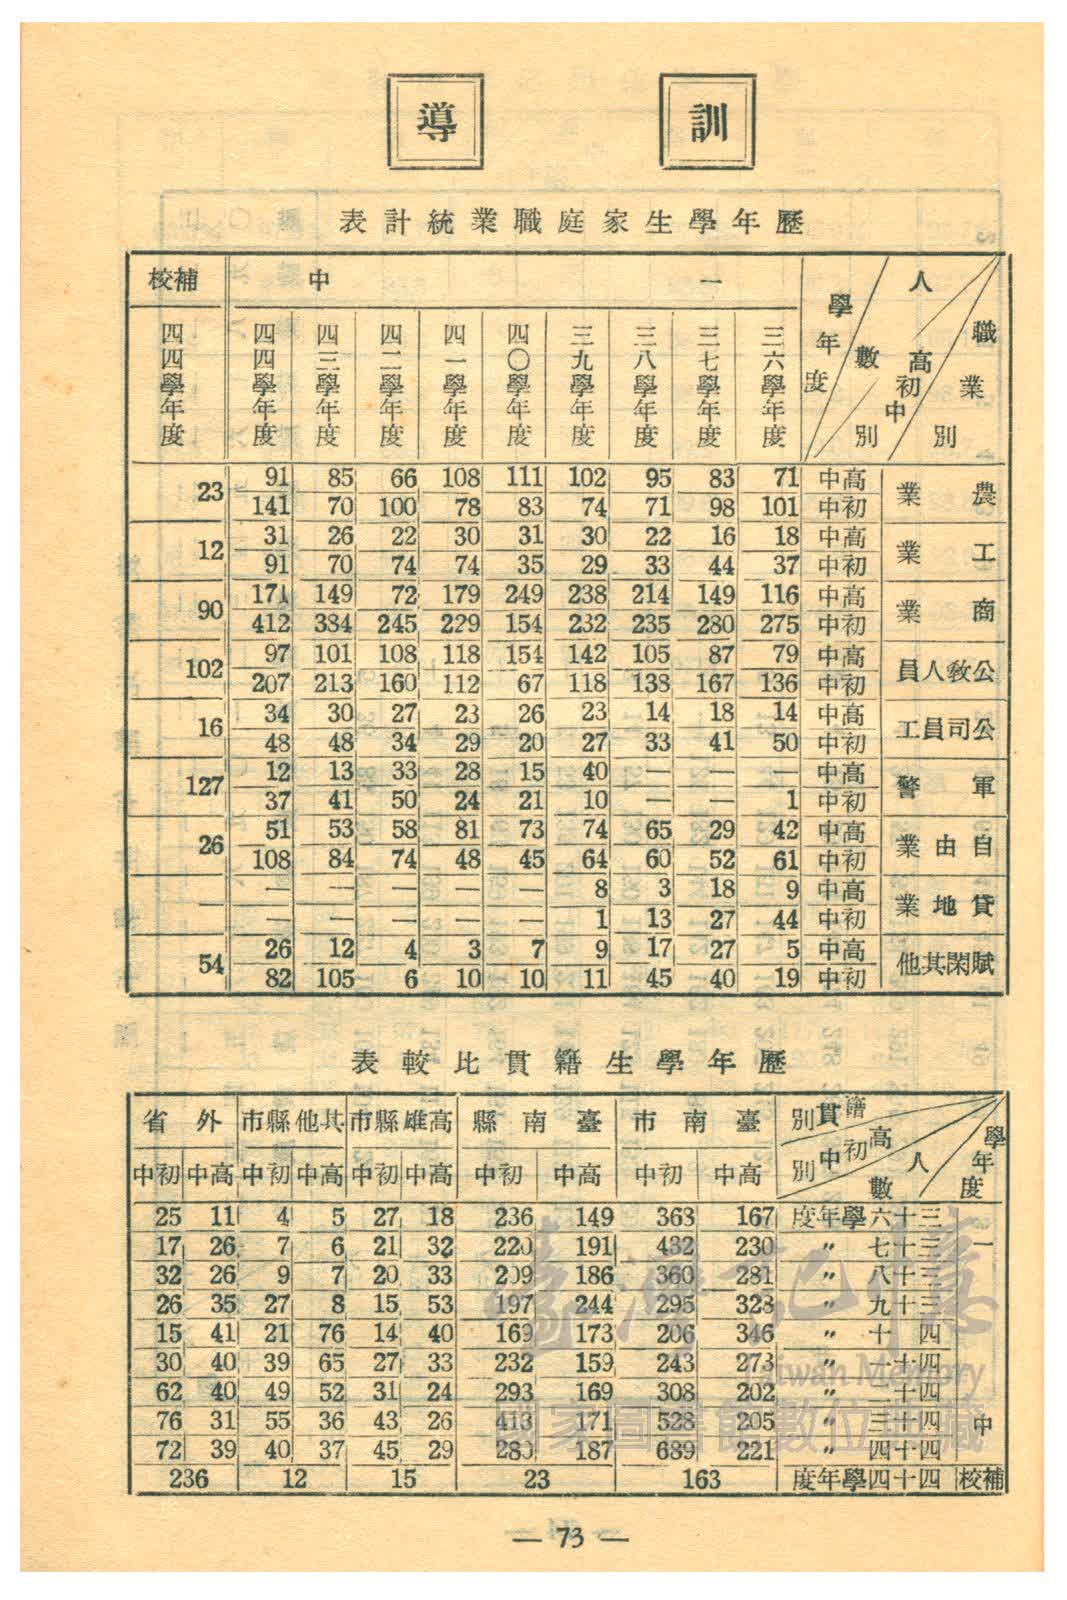 訓導
歷年學生家庭職業統計表
職業別 人數 高初中別 學年度 一中 補校
三六學年度 三七學年度 三八學年度 三九學年度 四〇學年度 四一學年度 四二學年度 四三學年度 四四學年度 四四學年度
農業 高中 71 83 95 102 111 108 66 85 91 23
初中 101 98 71 74 83 78 100 70 141
工業 高中 18 16 22 30 31 30 22 26 31 12
初中 37 44 33 29 35 74 74 70 91
商業 高中 116 149 214 238 249 179 72 149 171 90
初中 275 280 235 232 154 229 245 384 412
公教人員 高中 79 87 105 142 154 118 108 101 97 102
初中 136 167 138 118 67 112 160 213 207
公司員工 高中 14 18 14 23 26 23 27 30 34 16
初中 50 41 33 27 20 29 34 48 48
軍警 高中 — — — 40 15 28 33 13 12 127
初中 1 — — 10 21 24 50 41 37
自由業 高中 42 29 65 74 73 81 58 53 51 26
初中 61 52 60 64 45 48 74 84 108
貸地業 高中 9 18 3 8 — — — — — —
初中 44 27 13 1 — — — — —
賦閑其他 高中 5 27 17 9 7 3 4 12 26 54
初中 19 40 45 11 10 10 6 105 82
歷年學生籍貫比較表
學年度 人數 高初中別 籍貫別 臺南市 臺南縣 高雄縣市 其他縣市 外省
高中 初中 高中 初中 高中 初中 高中 初中 高中 初中
一中 三十六學年度 167 363 149 236 18 27 5 4 11 25
三十七〃 230 432 191 220 32 21 6 7 26 17
三十八〃 281 360 186 209 33 20 7 9 26 32
三十九〃 328 295 244 197 53 15 8 27 35 26
四十〃 346 206 173 169 40 14 76 21 41 15
四十一〃 273 243 159 232 33 27 65 39 40 30
四十二〃 202 308 169 293 24 31 52 49 40 62
四十三〃 205 528 171 413 26 43 36 55 31 76
四十四〃 221 689 187 280 29 45 37 40 39 72
補校 四十四學年度 163 23 15 12 236
— 73 —
臺灣記憶
Taiwan Memory
國家圖書館數位典藏